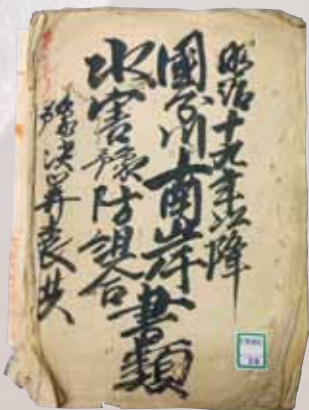 明治十九年以降
國分川南岸
水害豫防組合
書類
豫決算表共